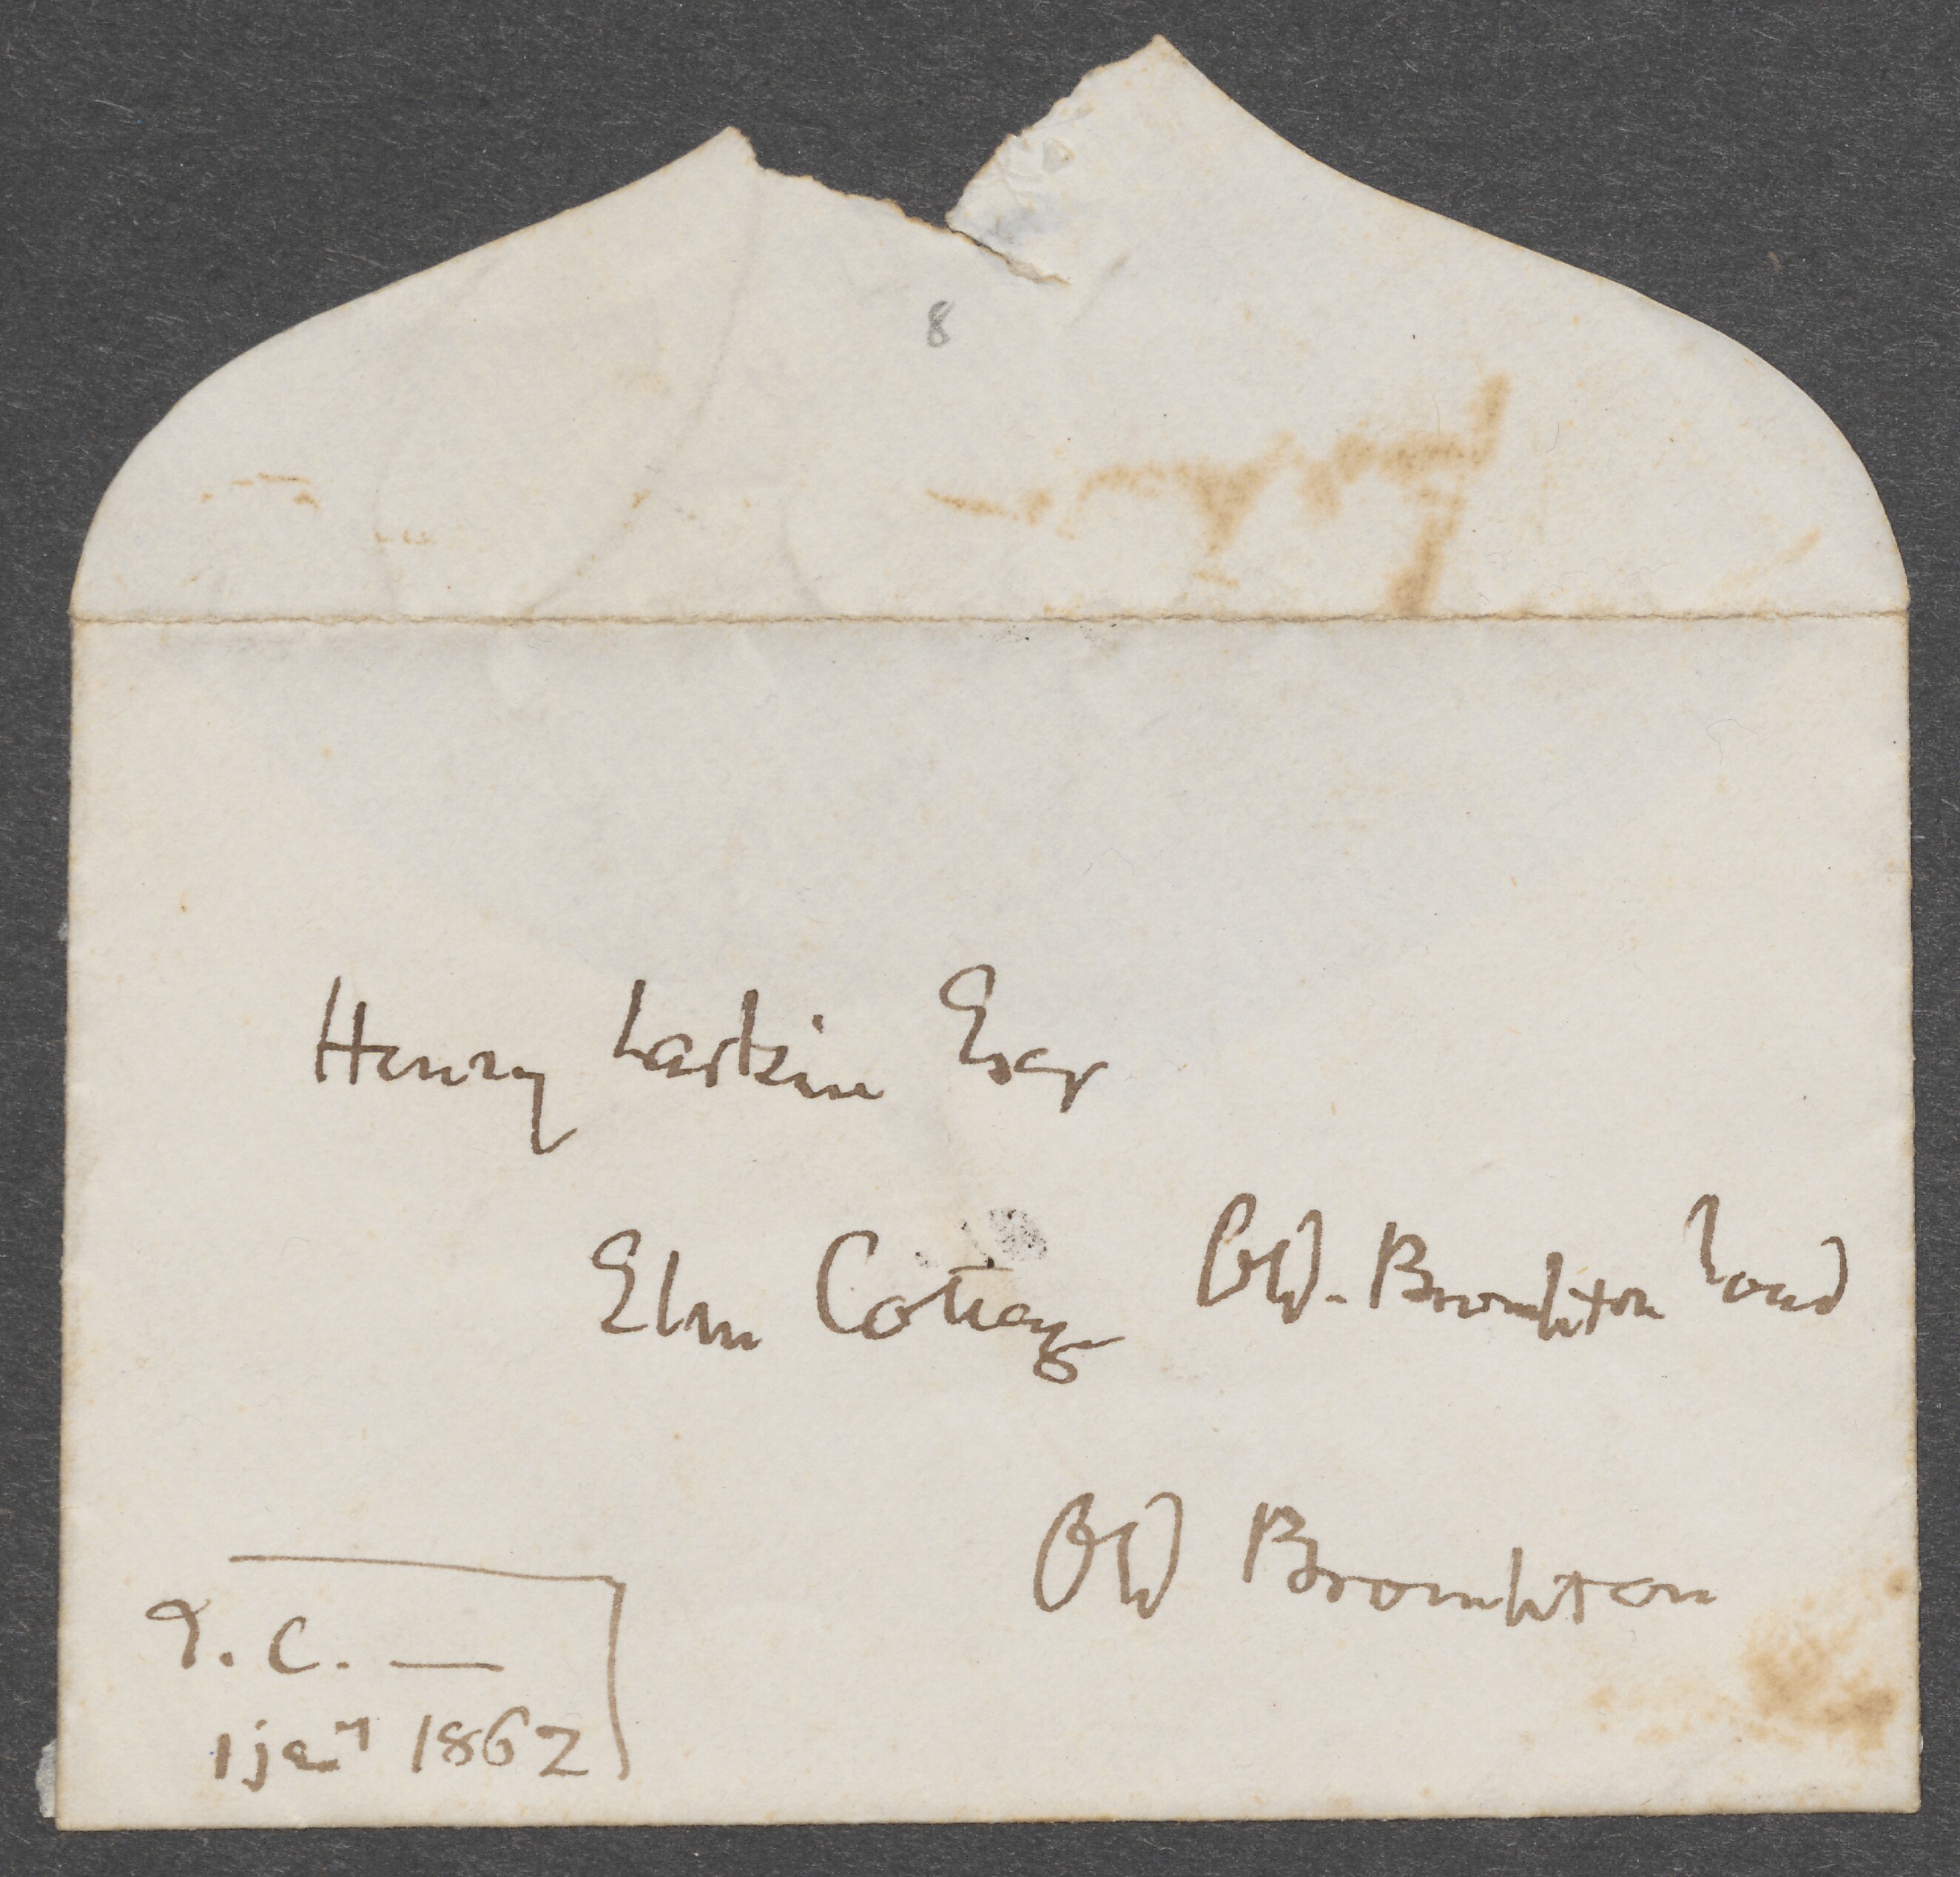 8
Henry Larkin Esqr
Elm Cottage Old-Brompton road
Old Brompton
T. C. —
1 jany 1862